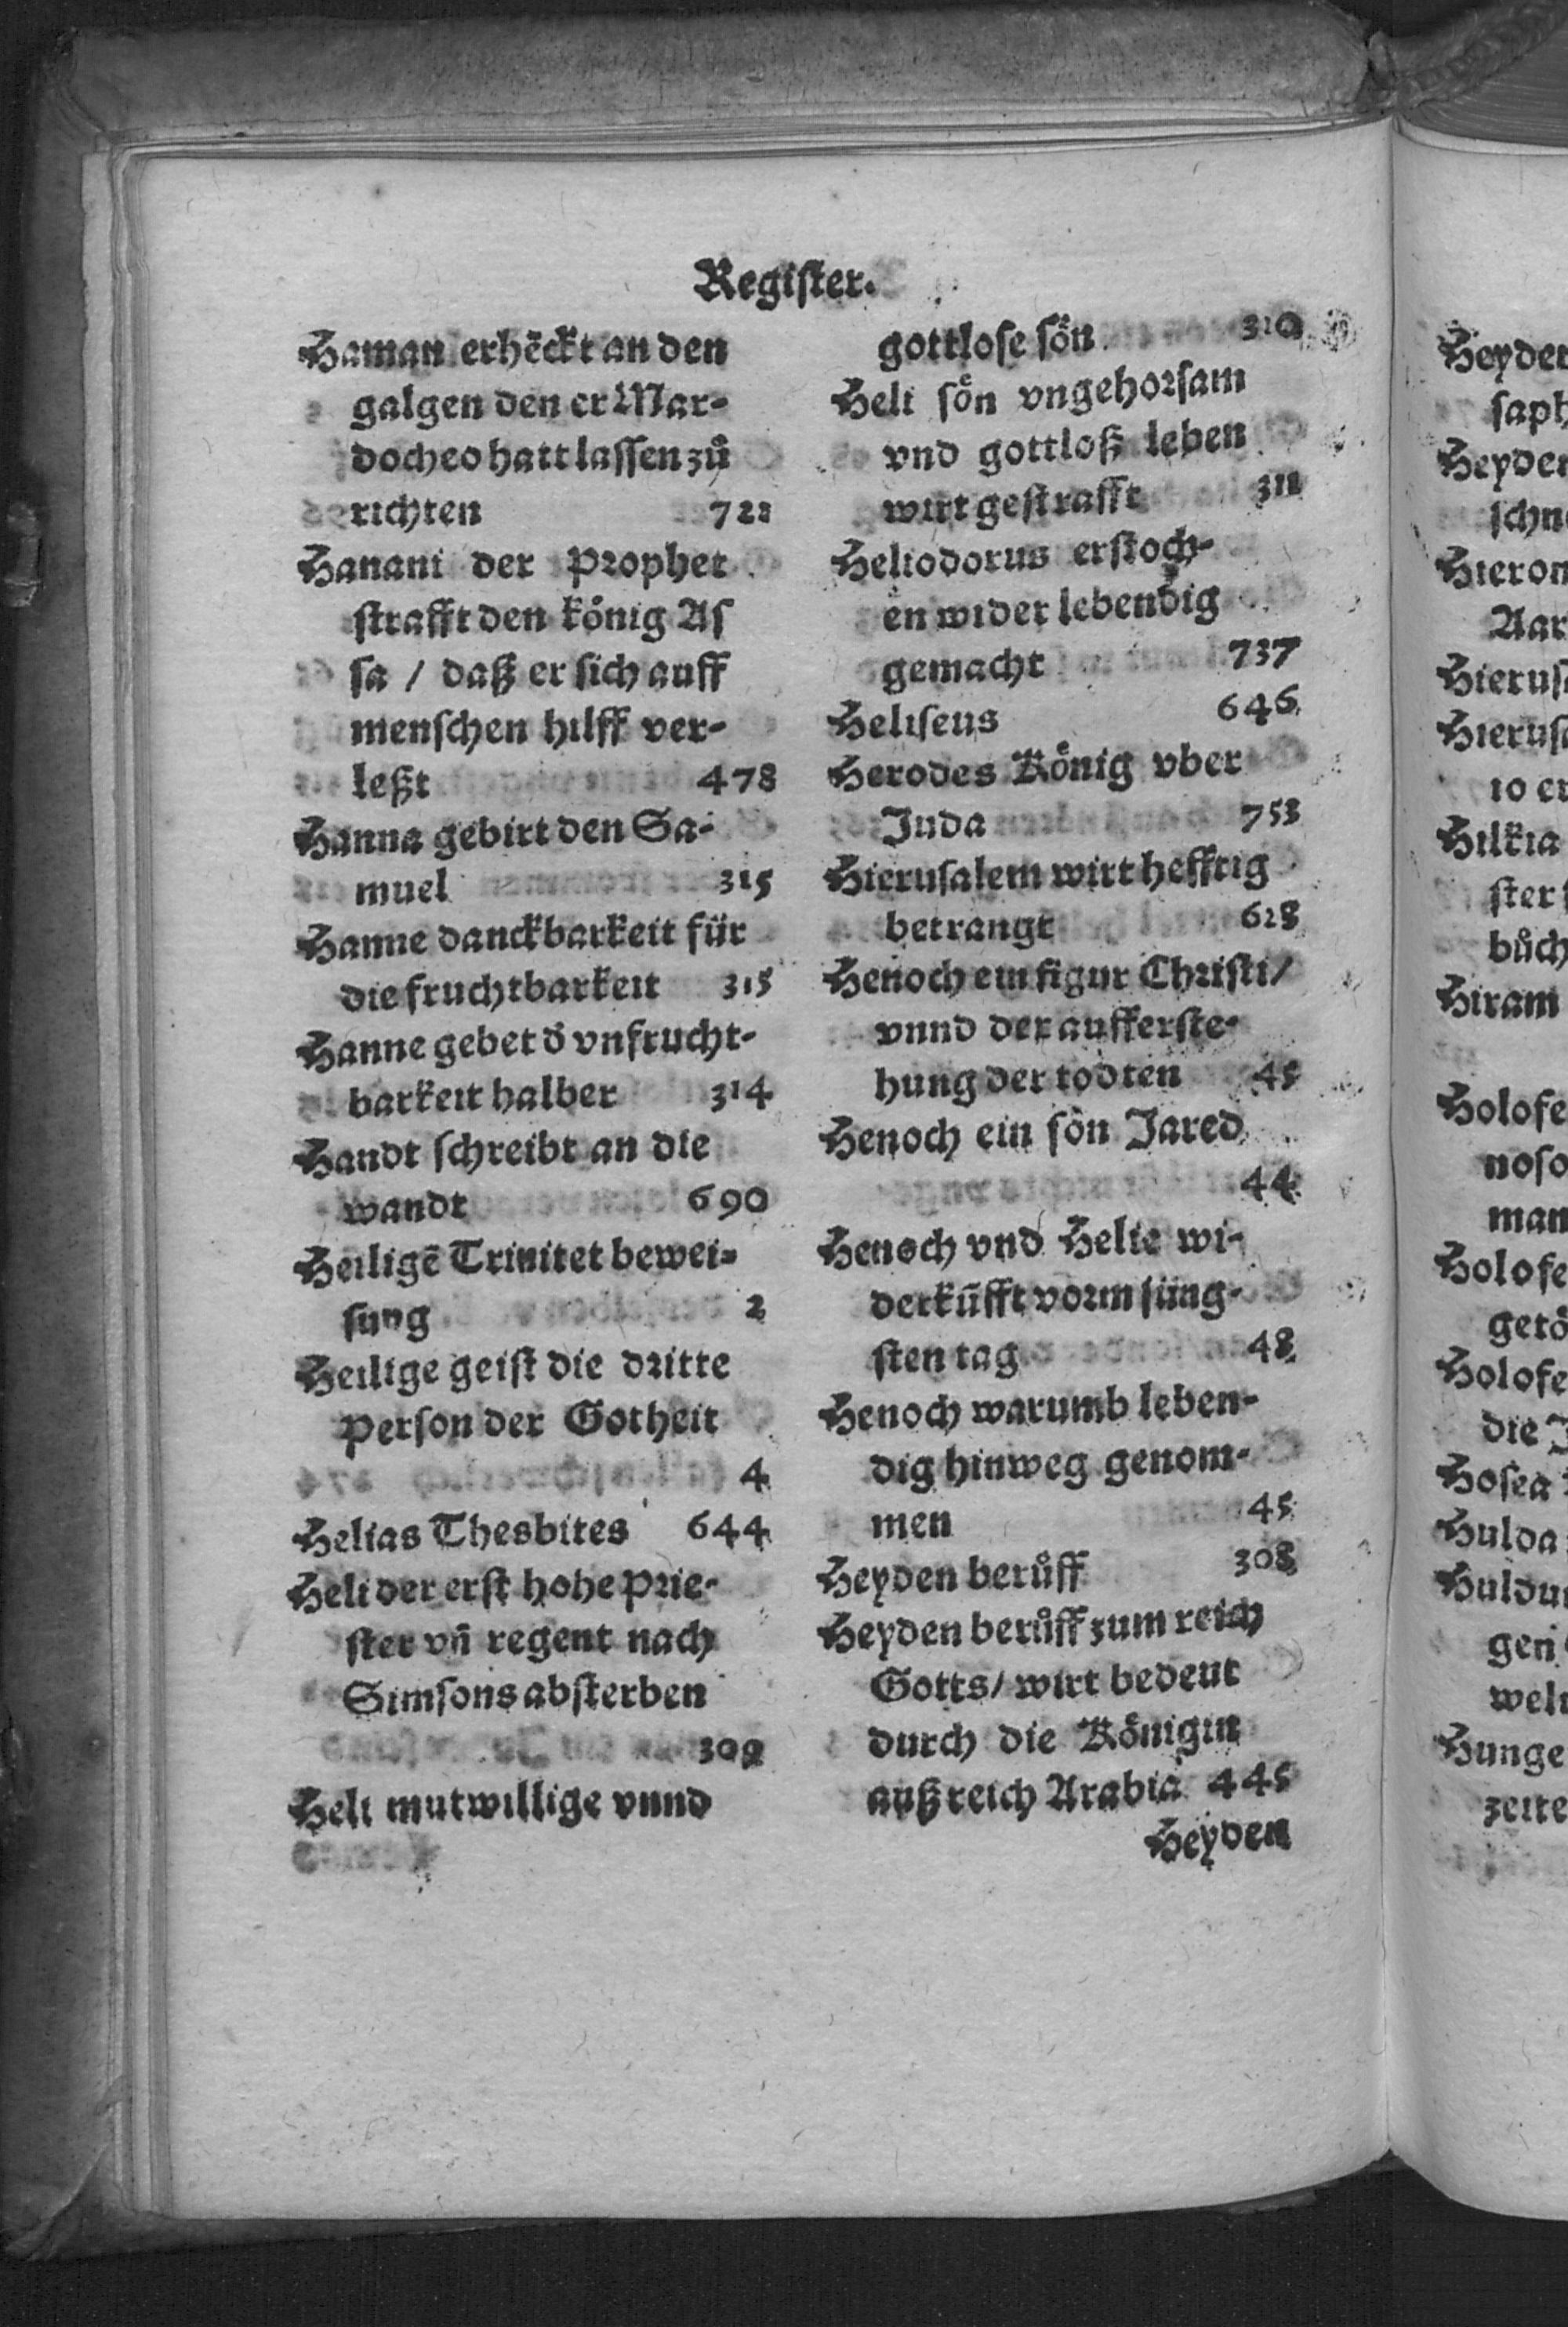 Register.
Haman erhēckt an den
galgen den er Mar-
docheo hatt lassen zů
richten 722
Hanani der Prophet
strafft den könig As
sa / daß er sich auff
menschen hilff ver-
leßt 478
Hanna gebirt den Sa-
muel 315
Hanne danckbarkeit für
die fruchtbarkeit 315
Hanne gebet d' vnfrucht-
barkeit halber 314
Handt schreibt an die
wandt 690
Heiligē Trinitet bewei-
sung 2
Heilige geist die dritte
Person der Gotheit
4
Helias Thesbites 644
Heli der erst hohe Prie-
ster vñ regent nach
Simsons absterben
309
Heli mutwillige vnnd
gottlose sön 310
Heli sön vngehorsam
vnd gottloß leben
wirt gestrafft 311
Heliodorus erstoch-
en wider lebendig
gemacht 737
Heliseus 646
Herodes König vber
Juda 753
Hierusalem wirt hefftig
betrangt 628
Henoch ein figur Christi/
vnnd der aufferste-
hung der todten 45
Henoch ein sön Jared
44
Henoch vnd Helie wi-
derkūfft vorm jüng-
sten tag 48
Henoch warumb leben-
dig hinweg genom-
men 45
Heyden berůff 308
Heyden berůff zum reich
Gotts/ wirt bedeut
durch die Königin
auß reich Arabia 445
Heyden
Heyden
saph
Heyden
schn
Hieron
Aar
Hierus
Hierus
Hilkia
ster
bůch
Hiram
Holofe
noso
man
Holofe
getö
Holofe
die
Hosea
Hulda
Huldu
gen
welt
Hunge
zeite